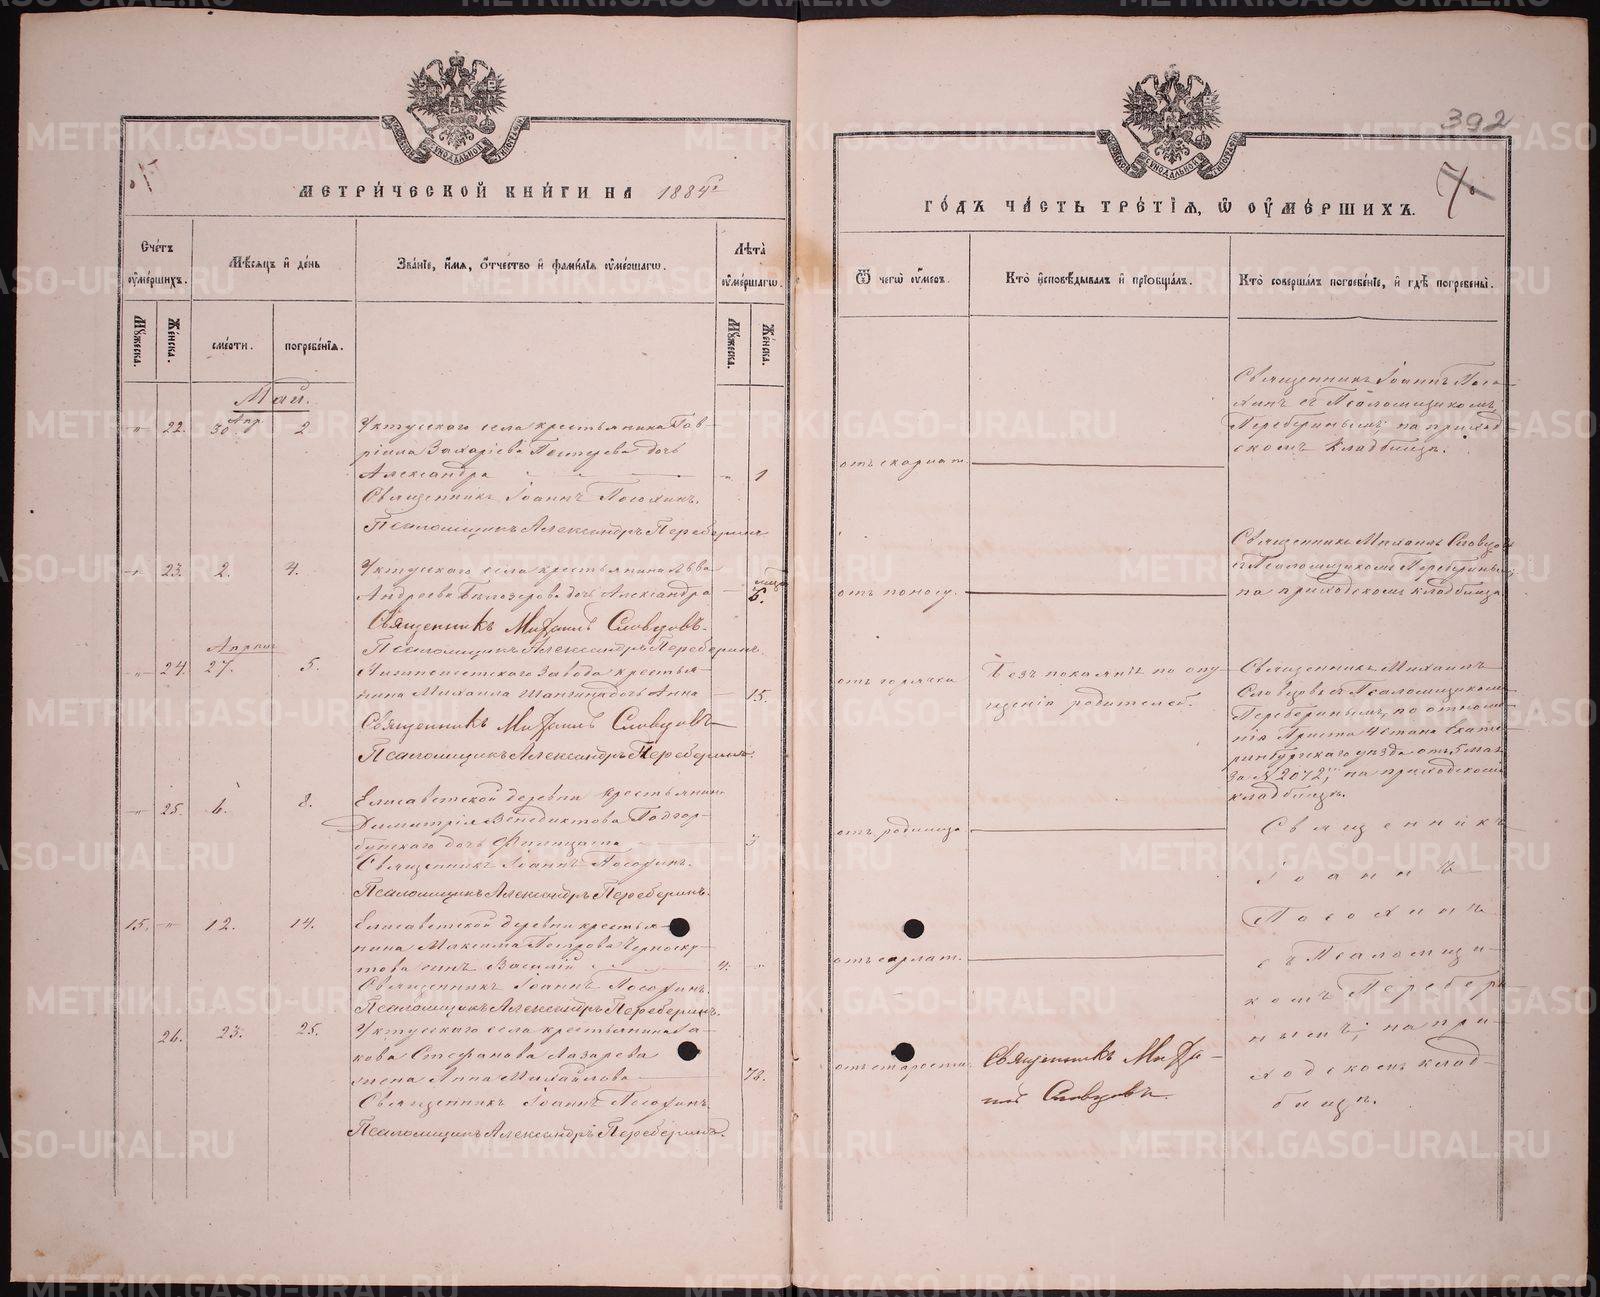 МЕТРИ́ЧЕСКОЙ КНИ́ГИ НА 1884
ГО́ДЪ ЧА́СТЬ ТРЕ́ТІѦ, Ѡ ОУМЕ́РШИХЪ.
392
7.
Сче́тъ оумéршихъ.
Мѣ́сяцъ и де́нь
Зва́ніе, и́мя, о́тчество и фами́лія оуме́ршагѡ.
Лѣта̀ оуме́ршагѡ.
Ѿ чегѡ̀ оу́меръ.
Кто̀ исповѣ́дывалъ и пріобща́лъ.
Кто̀ соверша́лъ погребе́ніе, и гдѣ̀ погребены̀.
Мꙋжеска.
Же́нска.
сме́рти.
погребе́нія.
Мꙋжеска.
Же́нска.
Май.
22. 30 Апр. 2
Уктусскаго села крестьянина Гав-
ріила Захаріева дочь
Александра 1
Священникъ Іоаннъ Посохинъ.
Псаломщикъ Александръ Переберинъ
отъ скарлат.
Священникъ Іоаннъ Посо-
хинъ съ Псаломщикомъ
Переберинымъ; на приход-
скомъ кладбищѣ.
23. 2. 4.
Уктусскаго села крестьянина Льва
Андреева Бѣлозерова дочь Александра 6.
Священникъ Михаилъ Словцовъ.
Псаломщикъ Александръ Переберинъ.
отъ поносу.
Священникъ Михаилъ Словцовъ
съ Псаломщикомъ Переберинымъ;
на приходскомъ кладбищѣ
Апрѣль
24. 27. 5.
Нижнеисетскаго завода крестья-
нина Михаила дочь Анна 15.
Священникъ Михаилъ Словцовъ
Псаломщикъ Александръ Переберинъ.
отъ горячки
Безъ покаянія по опу-
щенію родителей.
Священникъ Михаилъ
Словцовъ съ Псаломщикомъ
Переберинымъ, по отноше-
нію Пристава 4 стана Екате-
ринбургскаго уѣзда отъ 5 мая
за № 2072; на приходскомъ
кладбищѣ.
25. 6. 8.
Елисаветской деревни крестьянина
Димитрія Венедиктова Подкор-
бутскаго дочь
Священникъ Іоаннъ Посохинъ.
Псаломщикъ Александръ Переберинъ.
отъ родимца
Священникъ
Іоаннъ
Посохинъ
съ Псаломщи-
комъ Перебери-
нымъ; на при-
ходскомъ клад-
бищѣ.
15. 12. 14.
Елисаветской деревни крестья-
нина Максима Петрова Черноску-
това сынъ Василій 4.
Священникъ Іоаннъ Посохинъ.
Псаломщикъ Александръ Переберинъ.
отъ скарлат.
26. 23. 25.
Уктусскаго села крестьянина Іа-
кова Стефанова Лазарева
жена Анна Михайлова 78.
Священникъ Іоаннъ Посохинъ.
Псаломщикъ Александръ Переберинъ.
отъ старости
Священникъ Миха-
илъ Словцовъ.
METRIKI.GASO-URAL.RU